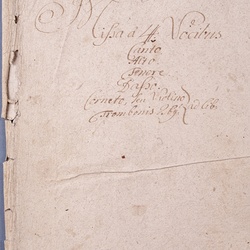 Missa à 4 Vocibus
Canto
Alto
Tenore
Basso.
Cornetto, seu Violino
Trombonis ad lib.